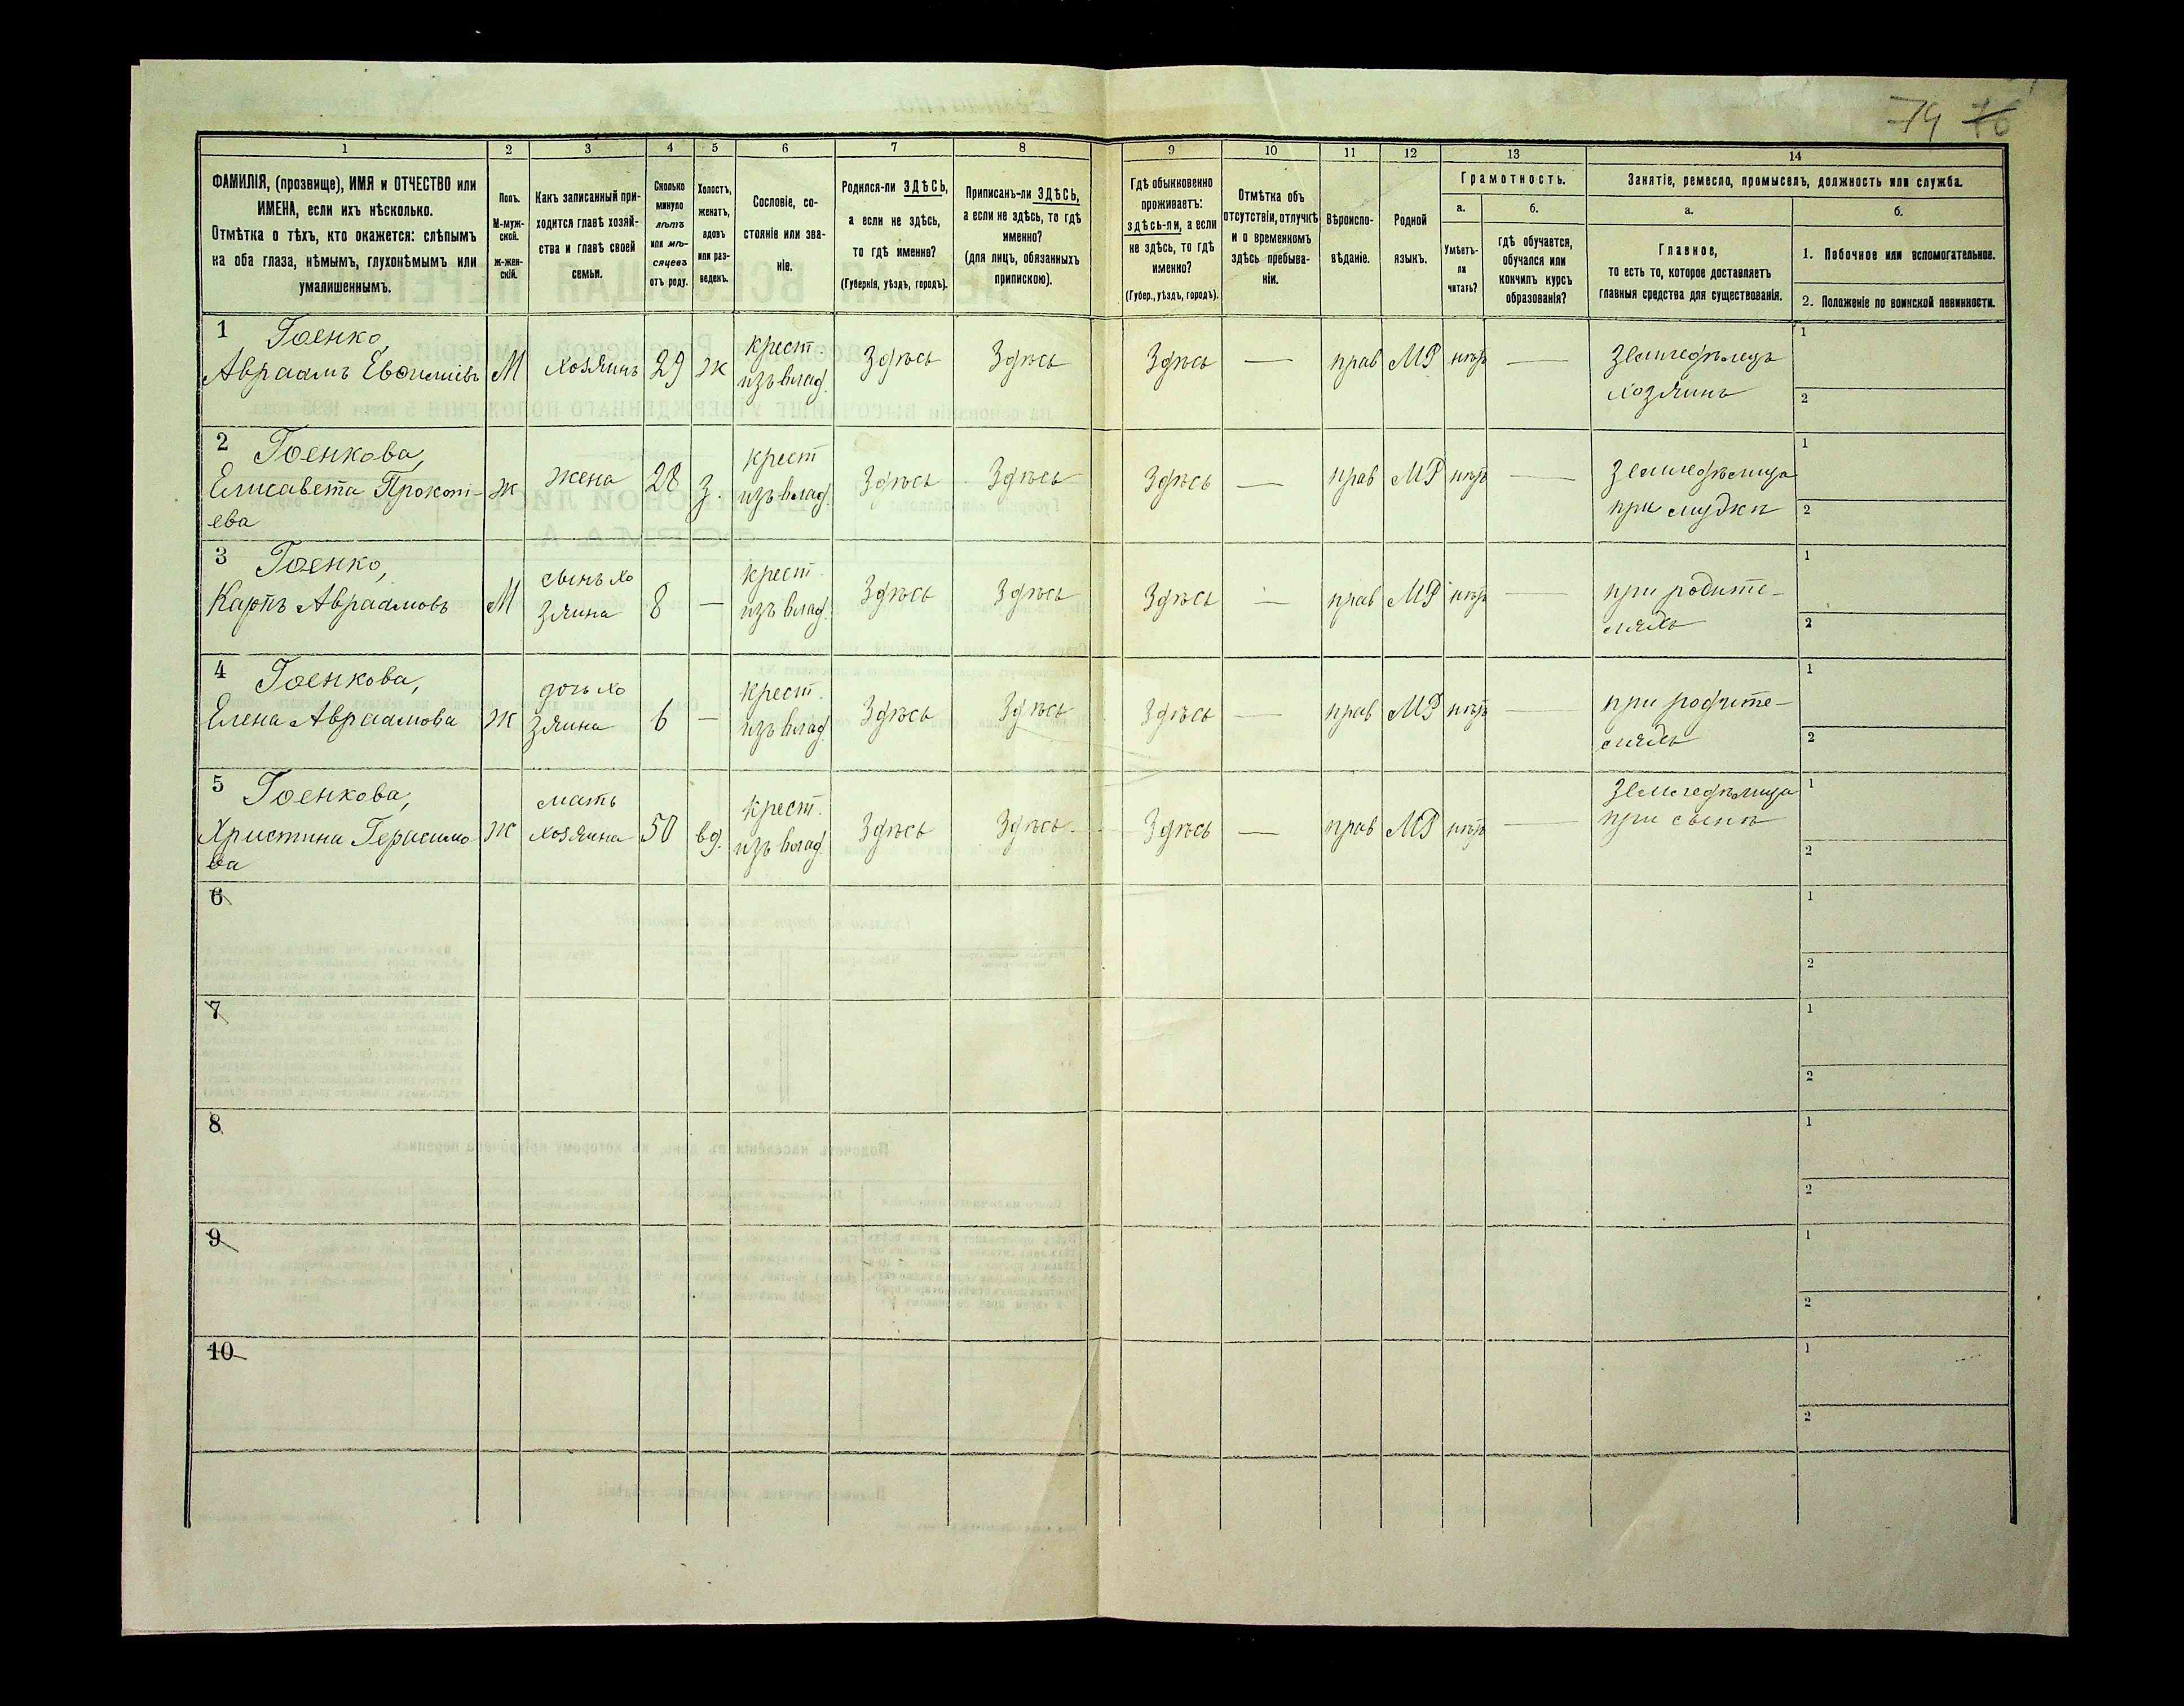 74 76
1 2 3 4 5 6 7 8 9 10 11 12 13 14
ФАМИЛІЯ, (прозвище), ИМЯ и ОТЧЕСТВО или
ИМЕНА, если ихъ нѣсколько.
Отмѣтка о тѣхъ, кто окажется: слѣпымъ
на оба глаза, нѣмымъ, глухонѣмымъ или
умалишеннымъ.
Полъ.
М-муж-
ской.
ж-жен-
скій.
Какъ записанный при-
ходится главѣ хозяй-
ства и главѣ своей
семьи.
Сколько
минуло
лѣтъ
или мѣ-
сяцевъ
отъ роду.
Холостъ,
женатъ,
вдовъ
или раз-
веденъ.
Сословіе, со-
стояніе или зва-
ніе.
Родился-ли ЗДѢСЬ,
а если не здѣсь,
то гдѣ именно?
(Губернія, уѣздъ, городъ).
Приписанъ-ли ЗДѢСЬ,
а если не здѣсь, то гдѣ
именно?
(для лицъ, обязанныхъ
припискою).
Гдѣ обыкновенно
проживаетъ:
здѣсь-ли, а если
не здѣсь, то гдѣ
именно?
(Губер., уѣздъ, городъ).
Отмѣтка объ
отсутствіи, отлучкѣ
и о временномъ
здѣсь пребыва-
ніи.
Вѣроиспо-
вѣданіе.
Родной
языкъ.
Грамотность.
а.
Умѣетъ-
ли
читать?
б.
гдѣ обучается,
обучался или
кончилъ курсъ
образованія?
Занятіе, ремесло, промыселъ, должность или служба.
а.
Главное,
то есть то, которое доставляетъ
главныя средства для существованія.
б.
1. Побочное или вспомогательное.
2. Положеніе по воинской повинности.
1 Гоенко,
Авраамъ Евѳиміевъ М хозяинъ 29 ж крест изъ влад. Здѣсь Здѣсь Здѣсь — прав МР нѣтъ — земледѣлецъ
хозяинъ
1
2
2 Гоенкова,
Елисавета Прокопі- ж жена 28 з. крест изъ влад. Здѣсь Здѣсь Здѣсь — прав МР нѣтъ — земледѣлица
ева при мужѣ
1
2
3 Гоенко,
Карпъ Авраамовъ М сынъ хо
зяина 8 — крест. изъ влад. Здѣсь Здѣсь Здѣсь — прав МР нѣтъ — при родите-
ляхъ
1
2
4 Гоенкова,
Елена Авраамова ж дочь хо
зяина 6 — крест. изъ влад. Здѣсь Здѣсь Здѣсь — прав МР нѣтъ — при родите-
ляхъ
1
2
5 Гоенкова,
Христина Герасимо ж мать
хозяина 50 вд. крест. изъ влад. Здѣсь Здѣсь. Здѣсь — прав МР нѣтъ — земледѣлица
ва при сынѣ
1
2
6
1
2
7
1
2
8
1
2
9
1
2
10
1
2